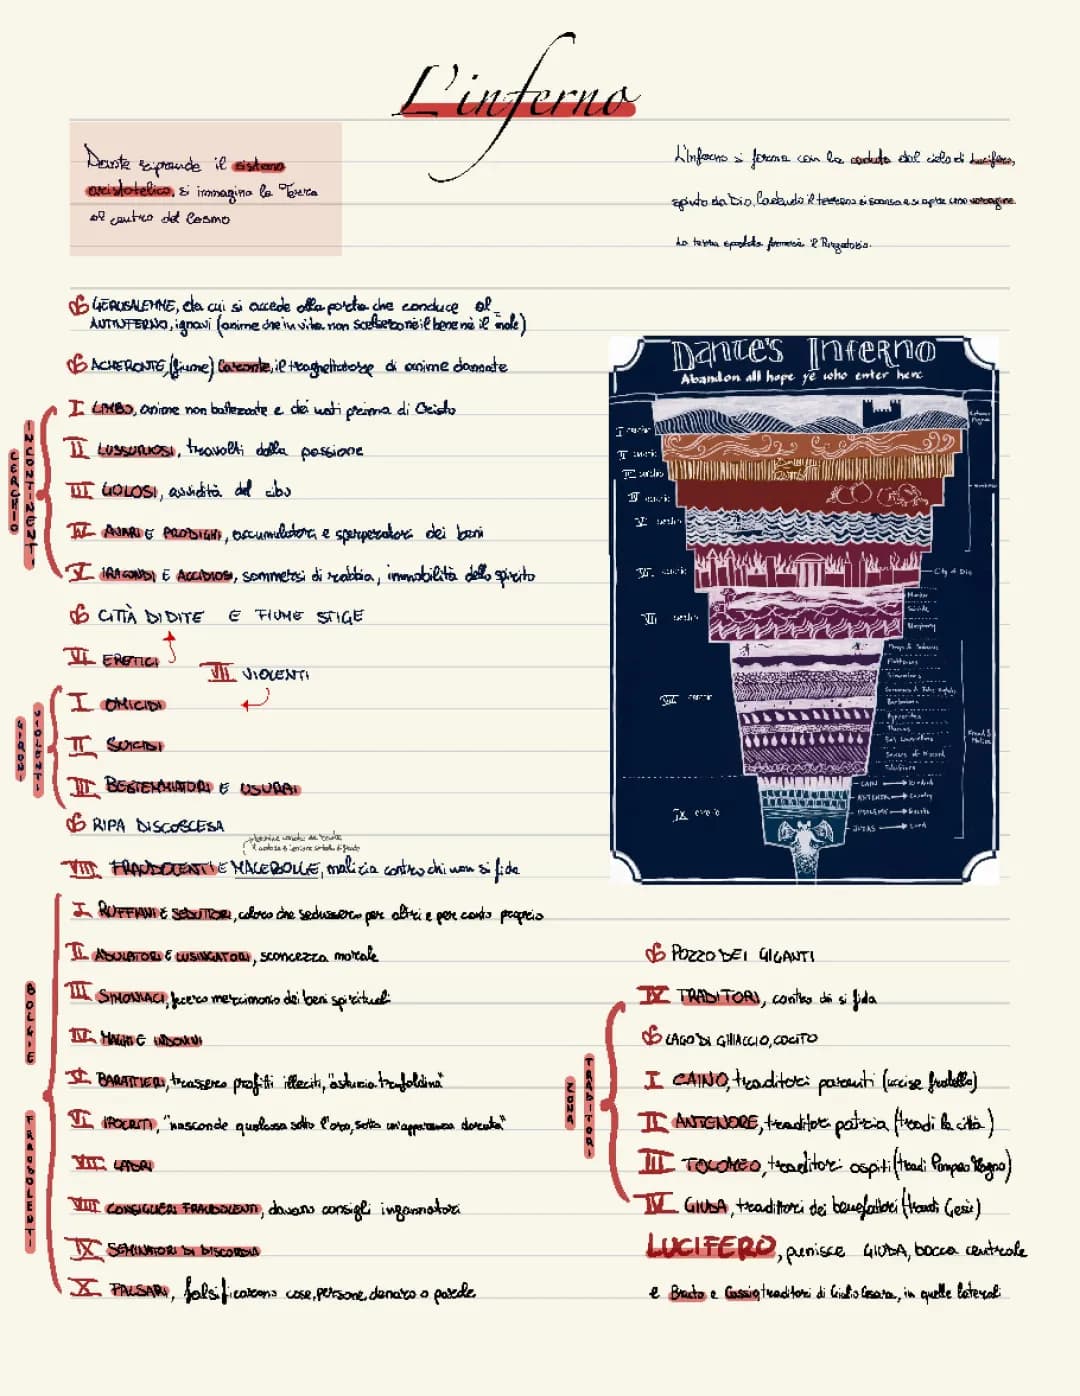 L'inferno
Dante riprende il sistema
aristotelico, si immagina la Terra
al centro del Cosmo
L'Inferno si forma con la caduta dal cielo di Lucifero,
spinto da Dio. Cadendo il terreno si scansa e si apre una voragine.
La terra spostata formerà il Purgatorio.
GERUSALEMME, da cui si accede alla porta che conduce al
ANTINFERNO, ignavi (anime che in vita non scelsero nè il bene nè il male)
ACHERONTE, (fiume) Caronte, il traghettatore di anime dannate
CERCHIO
INCONTINENTI
I LIMBO, anime non battezzate e dei nati prima di Cristo
II LUSSURIOSI, travolti dalla passione
III GOLOSI, avidità del cibo
IV AVARI E PRODIGHI, accumulatori e sperperatori dei beni
V IRACONDI E ACCIDIOSI, sommersi di rabbia, immobilità dello spirito
CITTÀ DI DITE E FIUME STIGE
VI ERETICI
VII VIOLENTI
GIRONI
VIOLENTI
I OMICIDI
II SUICIDI
III BESTEMMIATORI E USURAI
RIPA DISCOSCESA
VIII FRAUDOLENTI E MALEBOLGE, malizia contro chi non si fida
BOLGIE
FRAUDOLENTI
I RUFFIANI E SEDUTTORI, coloro che sedussero per altri e per conto proprio
II ADULATORI E LUSINGATORI, sconcezza morale
III SIMONIACI, fecero mercimonio dei beni spirituali
IV MAGHI E INDOVINI
V BARATTIERI, trassero profitti illeciti, "astuzia truffaldina"
VI IPOCRITI, "nasconde qualcosa sotto l'oro, sotto un'apparenza dorata"
VII LADRI
VIII CONSIGLIERI FRAUDOLENTI, davano consigli ingannatori
IX SEMINATORI DI DISCORDIA
X FALSARI, falsificarono cose, persone, denaro o parole
Dante's Inferno
Abandon all hope ye who enter here
I cerchio
II cerchio
III cerchio
IV cerchio
V cerchio
VI cerchio
City of Dis
VII cerchio
Murder
Suicide
Blasphemy
VIII cerchio
Flatterers
Simonists
Barterers
Hypocrites
Thieves
Sowers of Discord
Falsifiers
Fraud &
Malice
IX cerchio
CAIN
ANTENOR
Country
PTOLEMY
Guests
JUDAS
Lord
POZZO DEI GIGANTI
IX TRADITORI, contro chi si fida
LAGO DI GHIACCIO, COCITO
ZONA
TRADITORI
I CAINO, traditori parenti (uccise fratello)
II ANTENORE, traditori patria (tradì la città)
III TOLOMEO, traditori ospiti (tradì Pompeo Magno)
IV GIUDA, traditori dei benefattori (tradì Gesù)
LUCIFERO, punisce GIUDA, bocca centrale
e Bruto e Cassio, traditori di Giulio Cesare, in quelle laterali